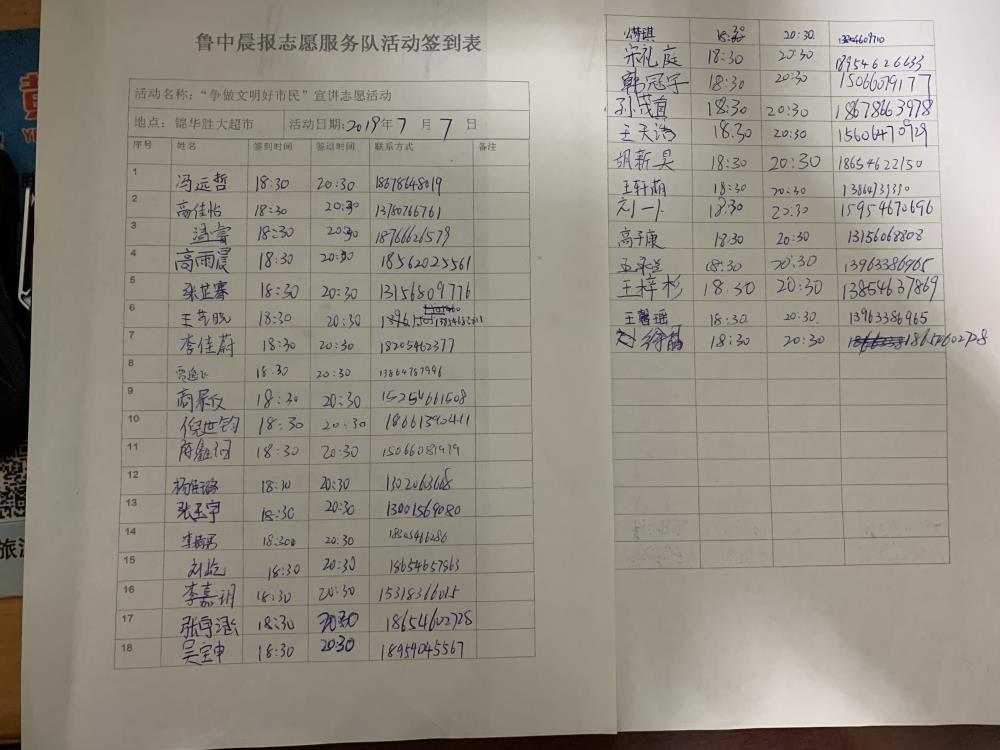 鲁中晨报志愿服务队活动签到表
活动名称：“争做文明好市民”宣讲志愿活动
地点：锦华胜大超市 活动日期：2019年7月7日
序号 姓名 签到时间 签退时间 联系方式 备注
1 冯远哲 18:30 20:30 18678648019
2 高佳怡 18:30 20:30 13780766761
3 18:30 20:30 18766626579
4 高雨晨 18:30 20:30 18562025561
5 张芷骞 18:30 20:30 13156809776
6 王艺晓 18:30 20:30
7 李佳蔚 18:30 20:30 18205462377
8 18:30 20:30 13864787996
9 18:30 20:30 15254661508
10 倪世钧 18:30 20:30 18661390411
11 18:30 20:30 15066081979
12 18:30 20:30
13 张玉宇 18:30 20:30 13001569080
14 18:30 20:30 18305466286
15 刘屹 18:30 20:30 18654657863
16 李嘉玥 18:30 20:30 15318366015
17 张宇涵 18:30 20:30 18654602728
18 吴宝申 18:30 20:30 18959045567
18:30 20:30
宋礼庭 18:30 20:30 18954626633
韩冠宇 18:30 20:30 15066079177
孙茂首 18:30 20:30 18678663978
王天浩 18:30 20:30 15606470929
胡新昊 18:30 20:30 18654622150
王轩萌 18:30 20:30
刘一卜 18:30 20:30 15954670696
高子康 18:30 20:30 13156068808
18:30 20:30 13963386965
王梓杉 18:30 20:30 13854637869
王馨瑶 18:30 20:30 13963386965
18:30 20:30 18654602728